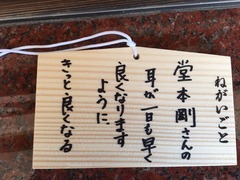 ねがいごと
堂本剛さんの
耳が一日も早く
良くなります
ように、
きっと良くなる